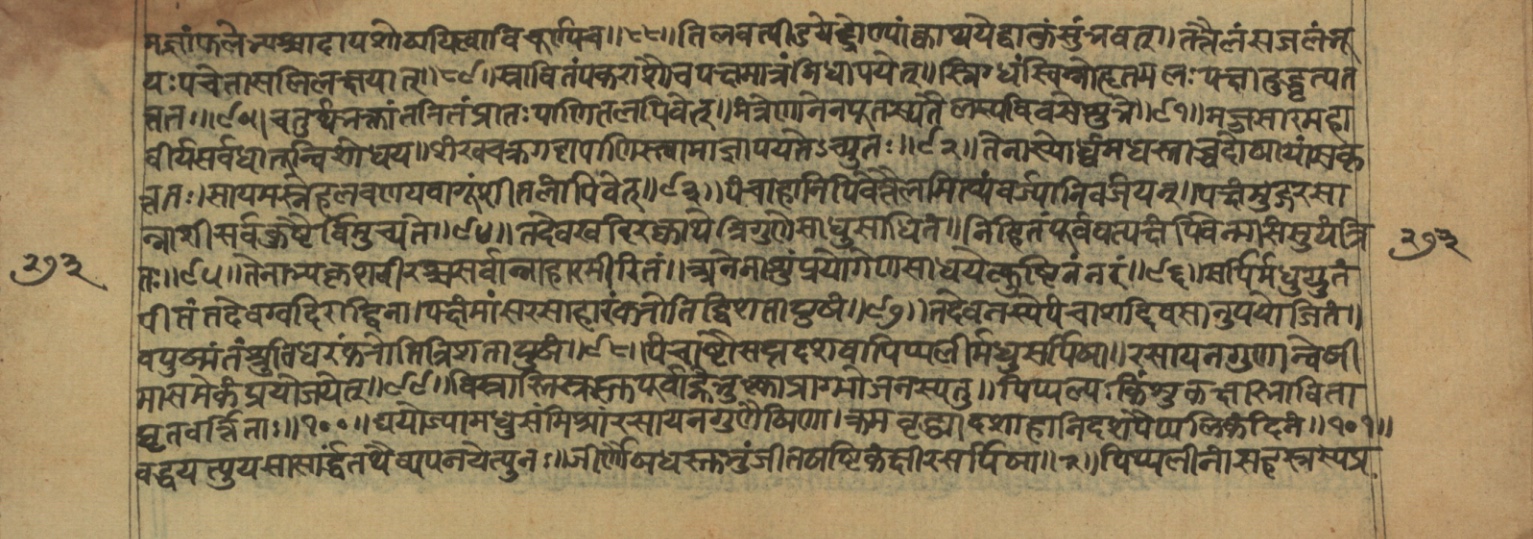 मज्जांफलेभ्यश्चादायशोषयित्वाविचूर्ण्यच॥८८॥तिलवत्पीडयेद्द्रोण्यांक्वाथयेद्वाकुसुंभवत्॥तत्तैलंसजलंभू
यःपचेतासलिलक्षयात्॥८९॥स्रावितंपक्वराशौचपक्षमात्रंनिधापयेत्॥स्निग्धंस्विन्नोहृतमलःपक्षादुद्धृत्यत
त्नतः॥९०॥चतुर्थभक्तांतरितंप्रातःपाणितलंपिवेत्॥मंत्रेणानेनपूतस्यतैलस्यदिवसेशुभे॥९१॥मज्जसारमहा
वीर्यसर्वधातून्विशोधय॥शंखचक्रगदापाणिस्त्वामाज्ञापयतेऽच्युतः॥९२॥तेनास्योर्ध्वमधस्ताच्चदोषायांत्यसकृ
त्ततः।सायमस्नेहलवणंयवागूंशीतलांपिवेत्॥९३॥पंचाहानिपिवेत्तैलमित्थंवर्ज्यानिवर्जयन्॥पक्षंमुद्गरसा
न्नाशीसर्वकुष्ठैर्विमुच्यते॥९४॥तदेवखदिरक्वाथेत्रिगुणेसाधुसाधितं॥निहितंपूर्ववत्पक्षंपिवेन्मासंसुयंत्रि
तः॥९५॥तेनाभ्यक्तशरीरश्चसर्वान्नाहारमीरितं॥अनेनाशुप्रयोगेणसाधयेत्कुष्टिनंनरं॥९६॥सर्पिर्मधुयुतं
पीतंतदेवखदिराद्विना।पक्षंमांसरसाहारंकरोतिद्विशतायुषं॥९७॥तदेवनस्येपंचाशद्दिवसानुपयोजितं॥
वपुष्मंतंश्रुतिधरंकरोतित्रिशतायुषं॥९८॥पंचाष्टौसप्तदशवापिप्पलीर्मधुसर्पिषा॥रसायनगुणान्वेषी
मासमेकंप्रयोजयेत्॥९९॥तिस्रस्तिस्रस्तुपूर्वाह्णेभुक्त्वाग्रेभोजनस्यतु॥पिप्पल्यःकिंशुकक्षारभाविता
घृतभर्जिताः॥१००॥प्रयोज्यामधुसंमिश्रारसायनगुणैषिणा।क्रमवृद्ध्यादशाहानिदशपैप्पलिकंदिनं॥१०१॥
वर्द्धयेत्पयसासार्द्धंतथैवापनयेत्पुनः॥जीर्णौषधस्तुभुंजीतषष्टिकंक्षीरसर्पिषा॥२॥पिप्पलीनांसहस्रस्यप्र
२७३
२७३